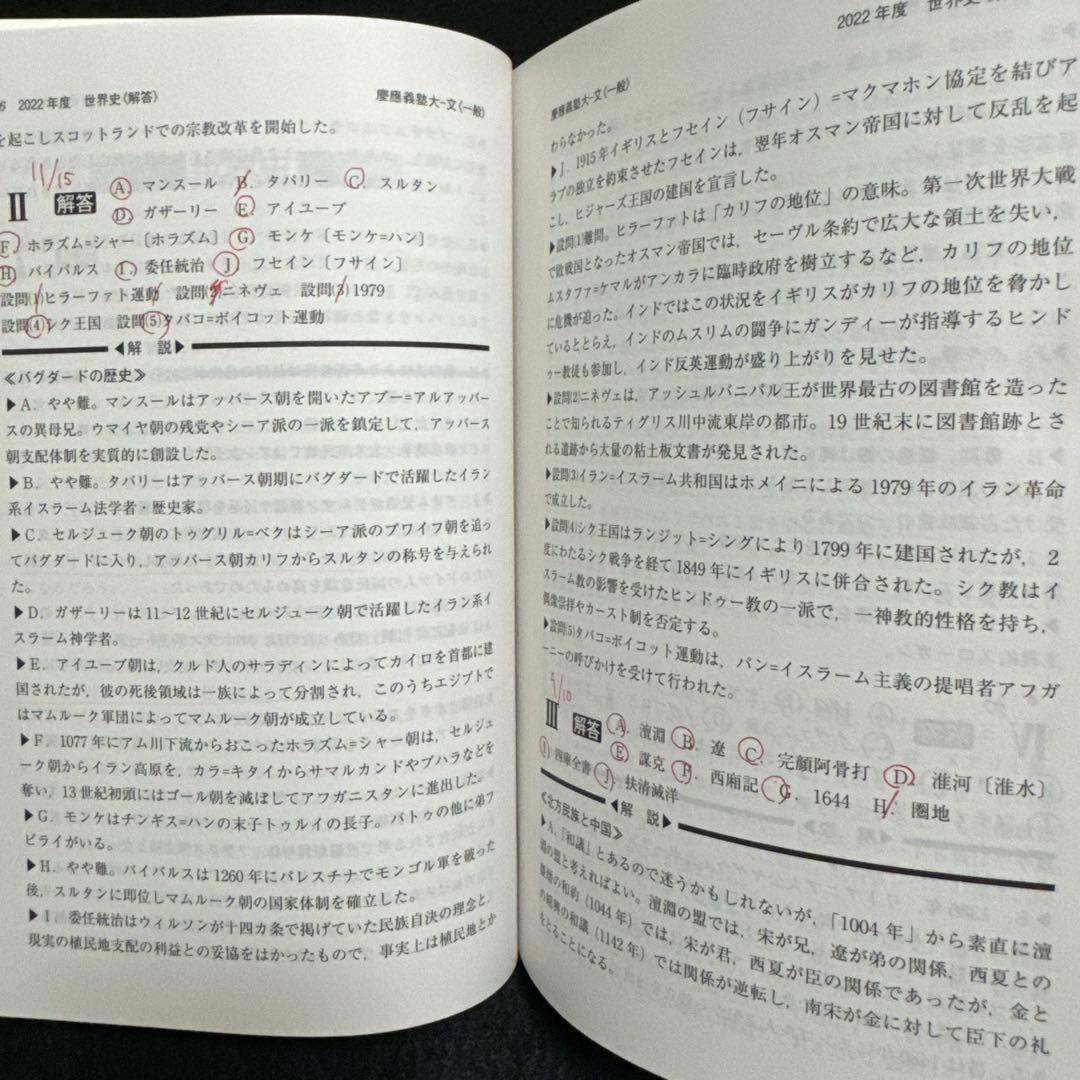 6 2022年度 世界史〈解答〉 慶應義塾大-文(一般)
を起こしスコットランドでの宗教改革を開始した。
11/15
Ⅱ 解答 A. マンスール B. タバリー C. スルタン
D. ガザーリー E. アイユーブ
F. ホラズム=シャー〔ホラズム〕 G. モンケ〔モンケ=ハン〕
H. バイバルス I. 委任統治 J. フセイン〔フサイン〕
設問(1)ヒラーファト運動 設問(2)ニネヴェ 設問(3)1979
設問(4)シク王国 設問(5)タバコ=ボイコット運動
◀解 説▶
≪バグダードの歴史≫
▶A. やや難。マンスールはアッバース朝を開いたアブー=アルアッバー
スの異母兄。ウマイヤ朝の残党やシーア派の一派を鎮定して，アッバース
朝支配体制を実質的に創設した。
▶B. やや難。タバリーはアッバース朝期にバグダードで活躍したイラン
系イスラーム法学者・歴史家。
▶C. セルジューク朝のトゥグリル=ベクはシーア派のブワイフ朝を追っ
てバグダードに入り，アッバース朝カリフからスルタンの称号を与えられ
た。
▶D. ガザーリーは11～12世紀にセルジューク朝で活躍したイラン系イ
スラーム神学者。
▶E. アイユーブ朝は，クルド人のサラディンによってカイロを首都に建
国されたが，彼の死後領域は一族によって分割され，このうちエジプトで
はマムルーク軍団によってマムルーク朝が成立している。
▶F. 1077年にアム川下流からおこったホラズム=シャー朝は，セルジュ
ーク朝からイラン高原を，カラ=キタイからサマルカンドやブハラなどを
奪い，13世紀初頭にはゴール朝を滅ぼしてアフガニスタンに進出した。
▶G. モンケはチンギス=ハンの末子トゥルイの長子。バトゥの他に弟フ
ビライがいる。
▶H. やや難。バイバルスは1260年にパレスチナでモンゴル軍を破った
後，スルタンに即位しマムルーク朝の国家体制を確立した。
▶I. 委任統治はウィルソンが十四カ条で掲げていた民族自決の理念と，
現実の植民地支配の利益との妥協をはかったもので，事実上は植民地とか
2022年度 世界史
慶應義塾大-文(一般)
わらなかった。
▶J. 1915年イギリスとフセイン（フサイン）=マクマホン協定を結びア
ラブの独立を約束させたフセインは，翌年オスマン帝国に対して反乱を起
こし，ヒジャーズ王国の建国を宣言した。
▶設問(1)難問。ヒラーファトは「カリフの地位」の意味。第一次世界大戦
で敗戦国となったオスマン帝国では，セーヴル条約で広大な領土を失い，
ムスタファ=ケマルがアンカラに臨時政府を樹立するなど，カリフの地位
に危機が迫った。インドではこの状況をイギリスがカリフの地位を脅かし
ているととらえ，インドのムスリムの闘争にガンディーが指導するヒンド
ゥー教徒も参加し，インド反英運動が盛り上がりを見せた。
▶設問(2)ニネヴェは，アッシュルバニパル王が世界最古の図書館を造った
ことで知られるティグリス川中流東岸の都市。19世紀末に図書館跡とさ
れる遺跡から大量の粘土板文書が発見された。
▶設問(3)イラン=イスラーム共和国はホメイニによる1979年のイラン革命
で成立した。
▶設問(4)シク王国はランジット=シングにより1799年に建国されたが，2
度にわたるシク戦争を経て1849年にイギリスに併合された。シク教はイ
スラーム教の影響を受けたヒンドゥー教の一派で，一神教的性格を持ち，
偶像崇拝やカースト制を否定する。
▶設問(5)タバコ=ボイコット運動は，パン=イスラーム主義の提唱者アフガ
ーニーの呼びかけを受けて行われた。
9/10
Ⅲ 解答 A. 澶淵 B. 遼 C. 完顔阿骨打 D. 淮河〔淮水〕
E. 謀克 F. 西廂記 G. 1644 H. 圏地
I. 四庫全書 J. 扶清滅洋
◀解 説▶
≪北方民族と中国≫
▶A. 「和議」とあるので迷うかもしれないが，「1004年」から素直に澶
淵の盟と考えればよい。澶淵の盟では，宋が兄，遼が弟の関係，西夏との
慶暦の和約（1044年）では，宋が君，西夏が臣の関係であったが，金と
の紹興の和議（1142年）では関係が逆転し，南宋が金に対して臣下の礼
をとることになる。